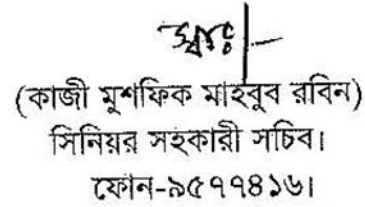 স্বাঃ
(কাজী মুশফিক মাহবুব রবিন)
সিনিয়র সহকারী সচিব।
ফোন-৯৫৭৭৪১৬।